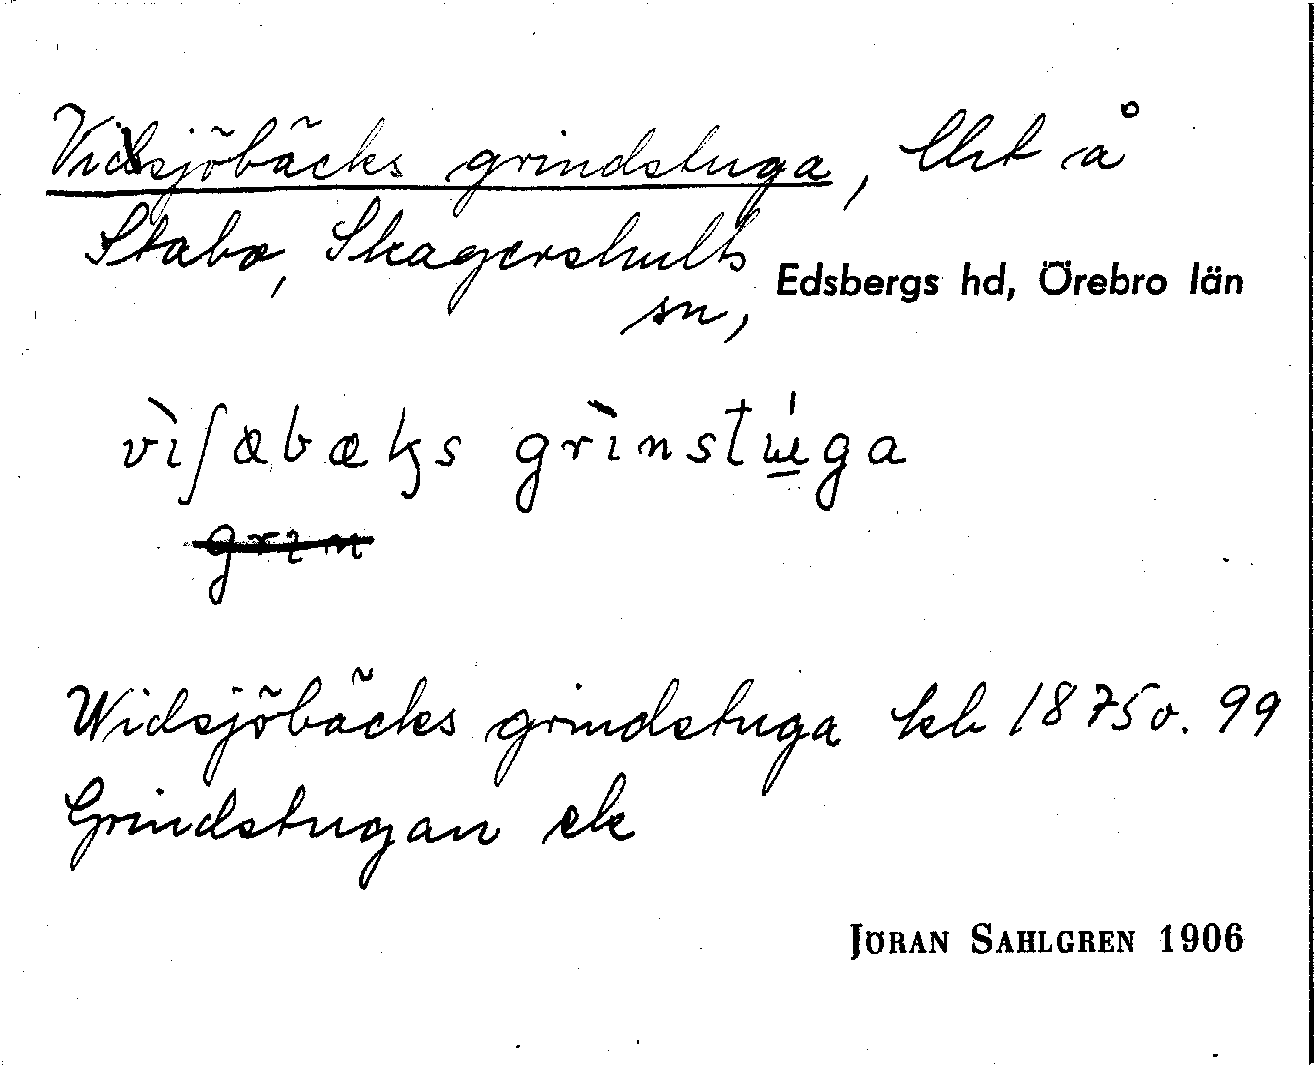 Vidsjöbäcks grindstuga, lht å
Stabo, Skagershults
sn, Edsbergs hd, Örebro län
vìʃæbæk̡s grìnstú̲ga
grɪn
Widsjöbäcks grindstuga kb 1875 o. 99
Grindstugan ek
JÖRAN SAHLGREN 1906